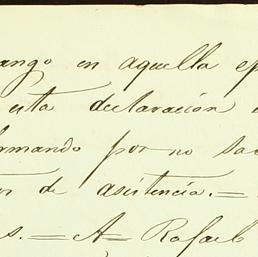 ango en aquella ep
esta declaracion
irmando por no sa
de asistencia.=
s.= A Rafael